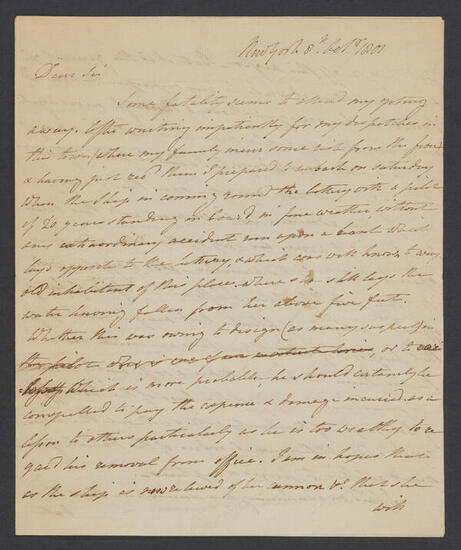 New York 8th Octr 1801
Dear Sir
Some fatality seems to attend my getting
away. After waiting impatiently for my dispatches in
this town, where my family meur some risk from the fever
& having just recd them I prepared to embark on saturday
When the ship in coming round the battery with a pilot
of 20 years standing on board, in fine weather without
any extraordinary accident run upon a bank which
lays opposite to the battery, & which was well known to every
old inhabitant of this place. where she still lays the
water having fallen from her above five feet.
Whether this was owing to design (as many suspect) in
the pilot who is one of, or to
which is more probable, he should certainly be
compelled to pay the expence & damage incured, as a
lesson to others particularly as he is too wealthy to re
gard his removal from office. I am in hopes that
as the ship is now relieved of her cannon &c that she
will